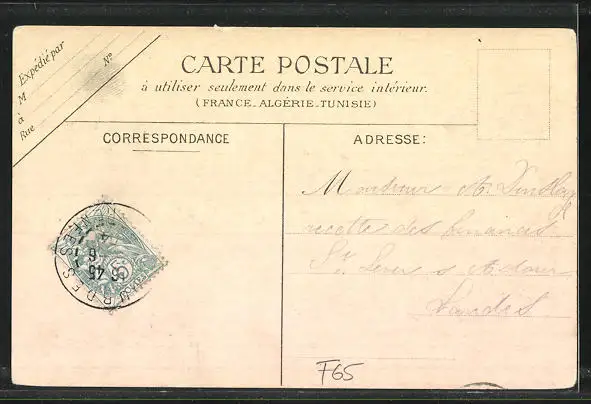 Expédié par
M
à
Rue
N°
CARTE POSTALE
à utiliser seulement dans le service intérieur.
(FRANCE_ALGÉRIE_TUNISIE)
CORRESPONDANCE
ADRESSE:
Monsieur A.
recette des finances
St Sever s Adour
Landes
F65